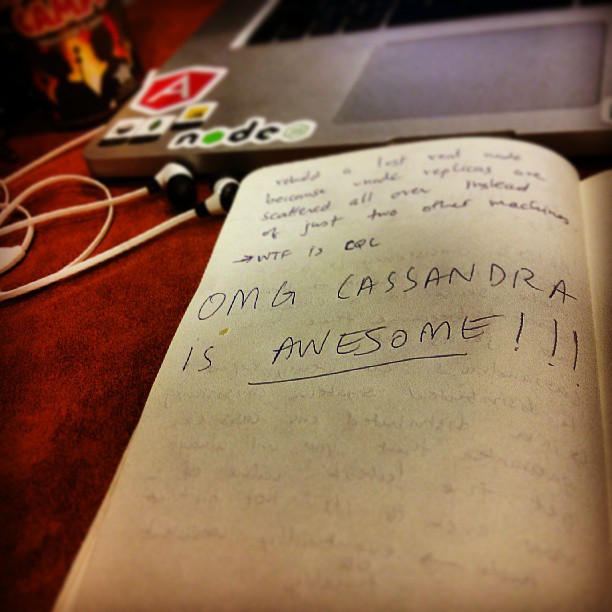 CAMP
node
rebuild a lost real node
because vnode replicas are
scattered all over instead
of just two other machines
→ WTF is CQL
OMG CASSANDRA
IS AWESOME!!!